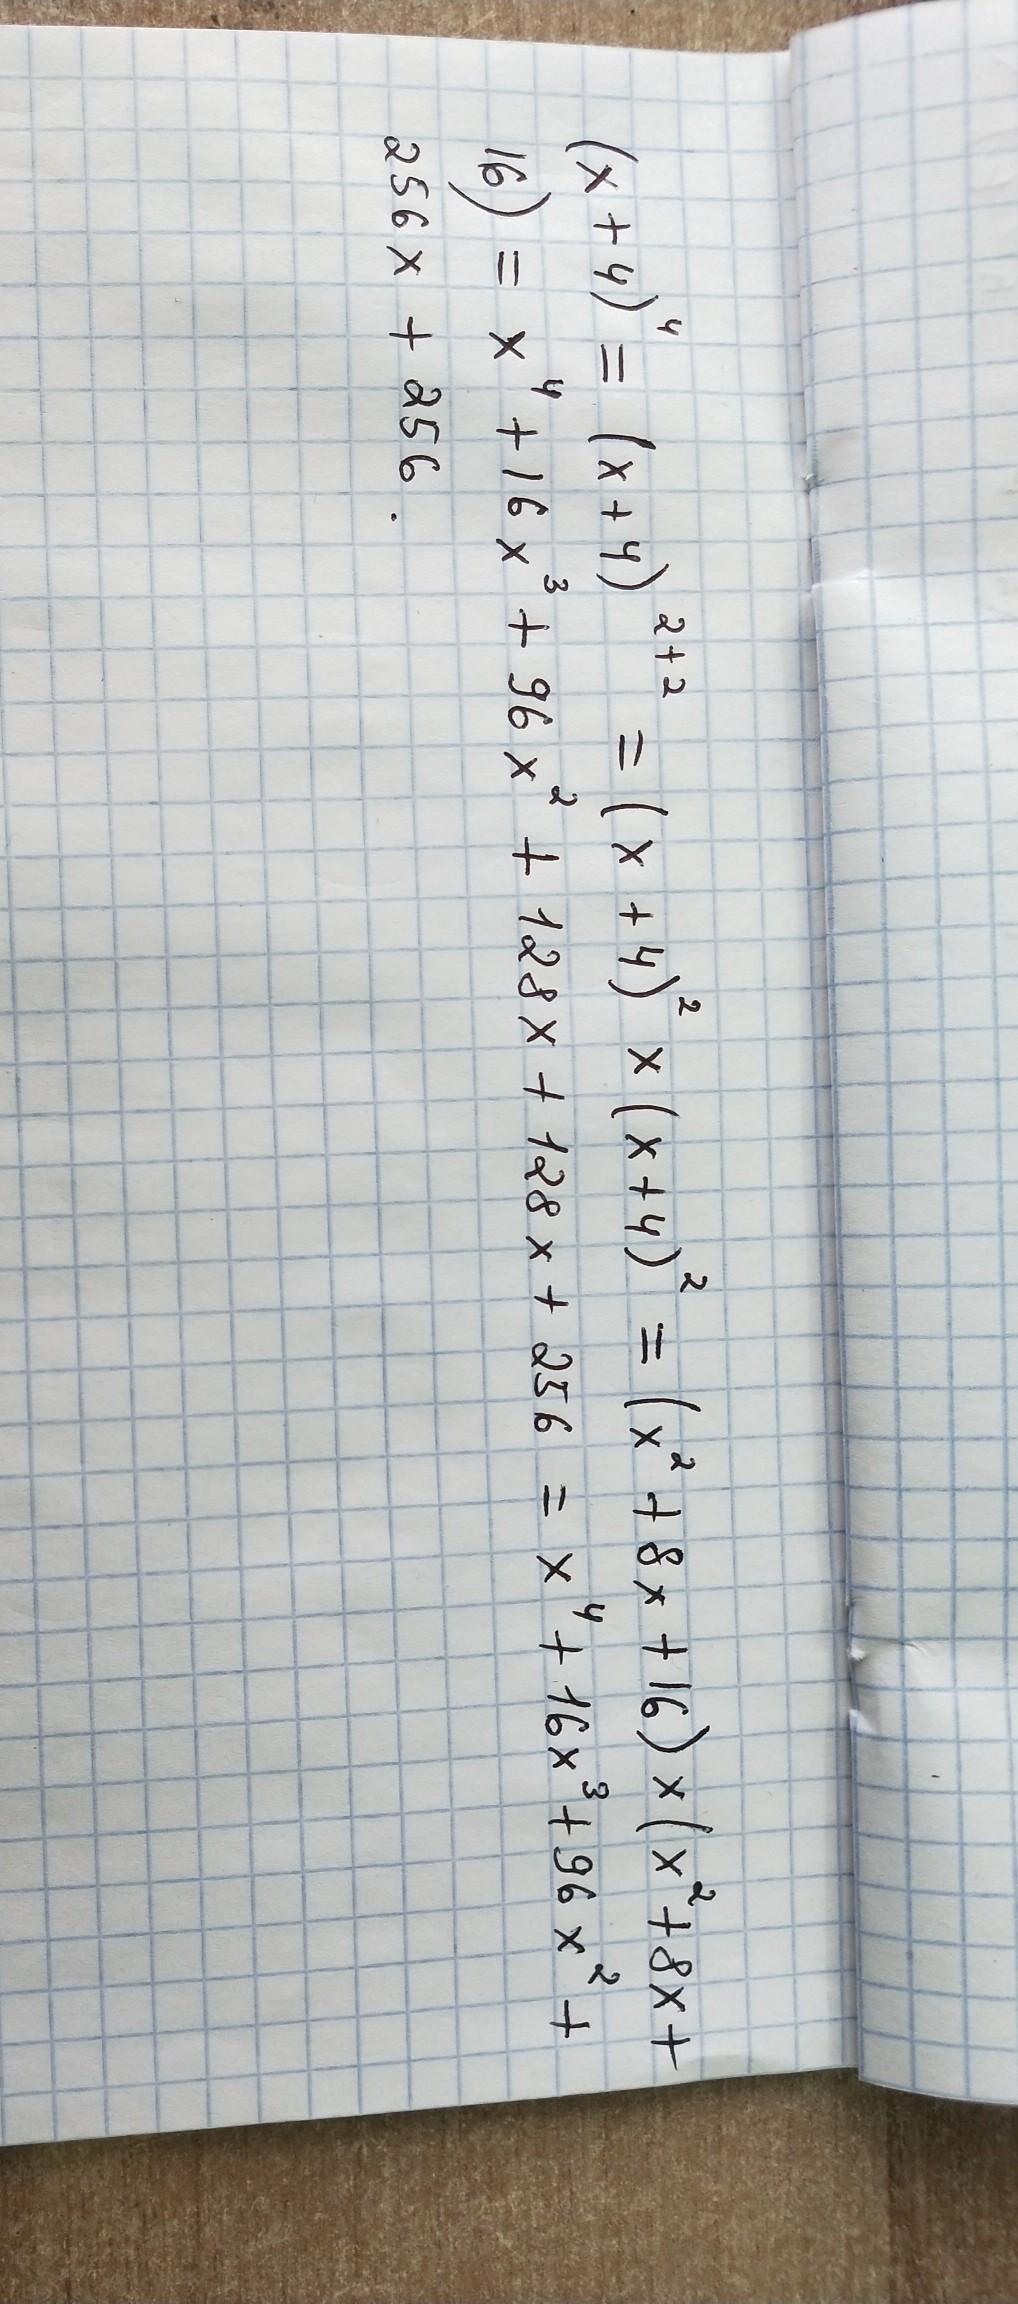 (x+4)⁴ = (x+4)²⁺² = (x+4)² x (x+4)² = (x²+8x+16) x (x²+8x+
16) = x⁴+16x³+96x²+128x+128x+256 = x⁴+16x³+96x²+
256x+256.